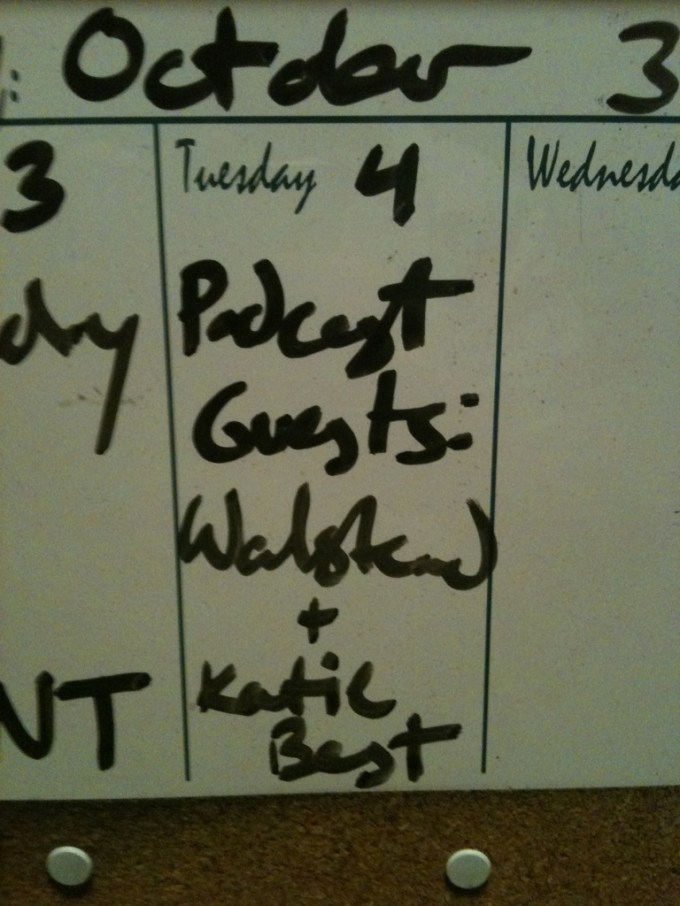 : October 3
3 Tuesday 4 Wednesda
Podcast
Guests:
Walstead
+
NT Katie
Best